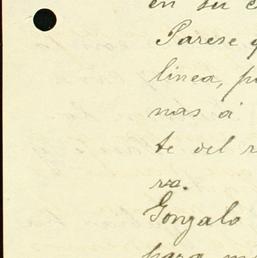 en su
Parese
linea,
nas á
te del
va.
Gonzalo
para